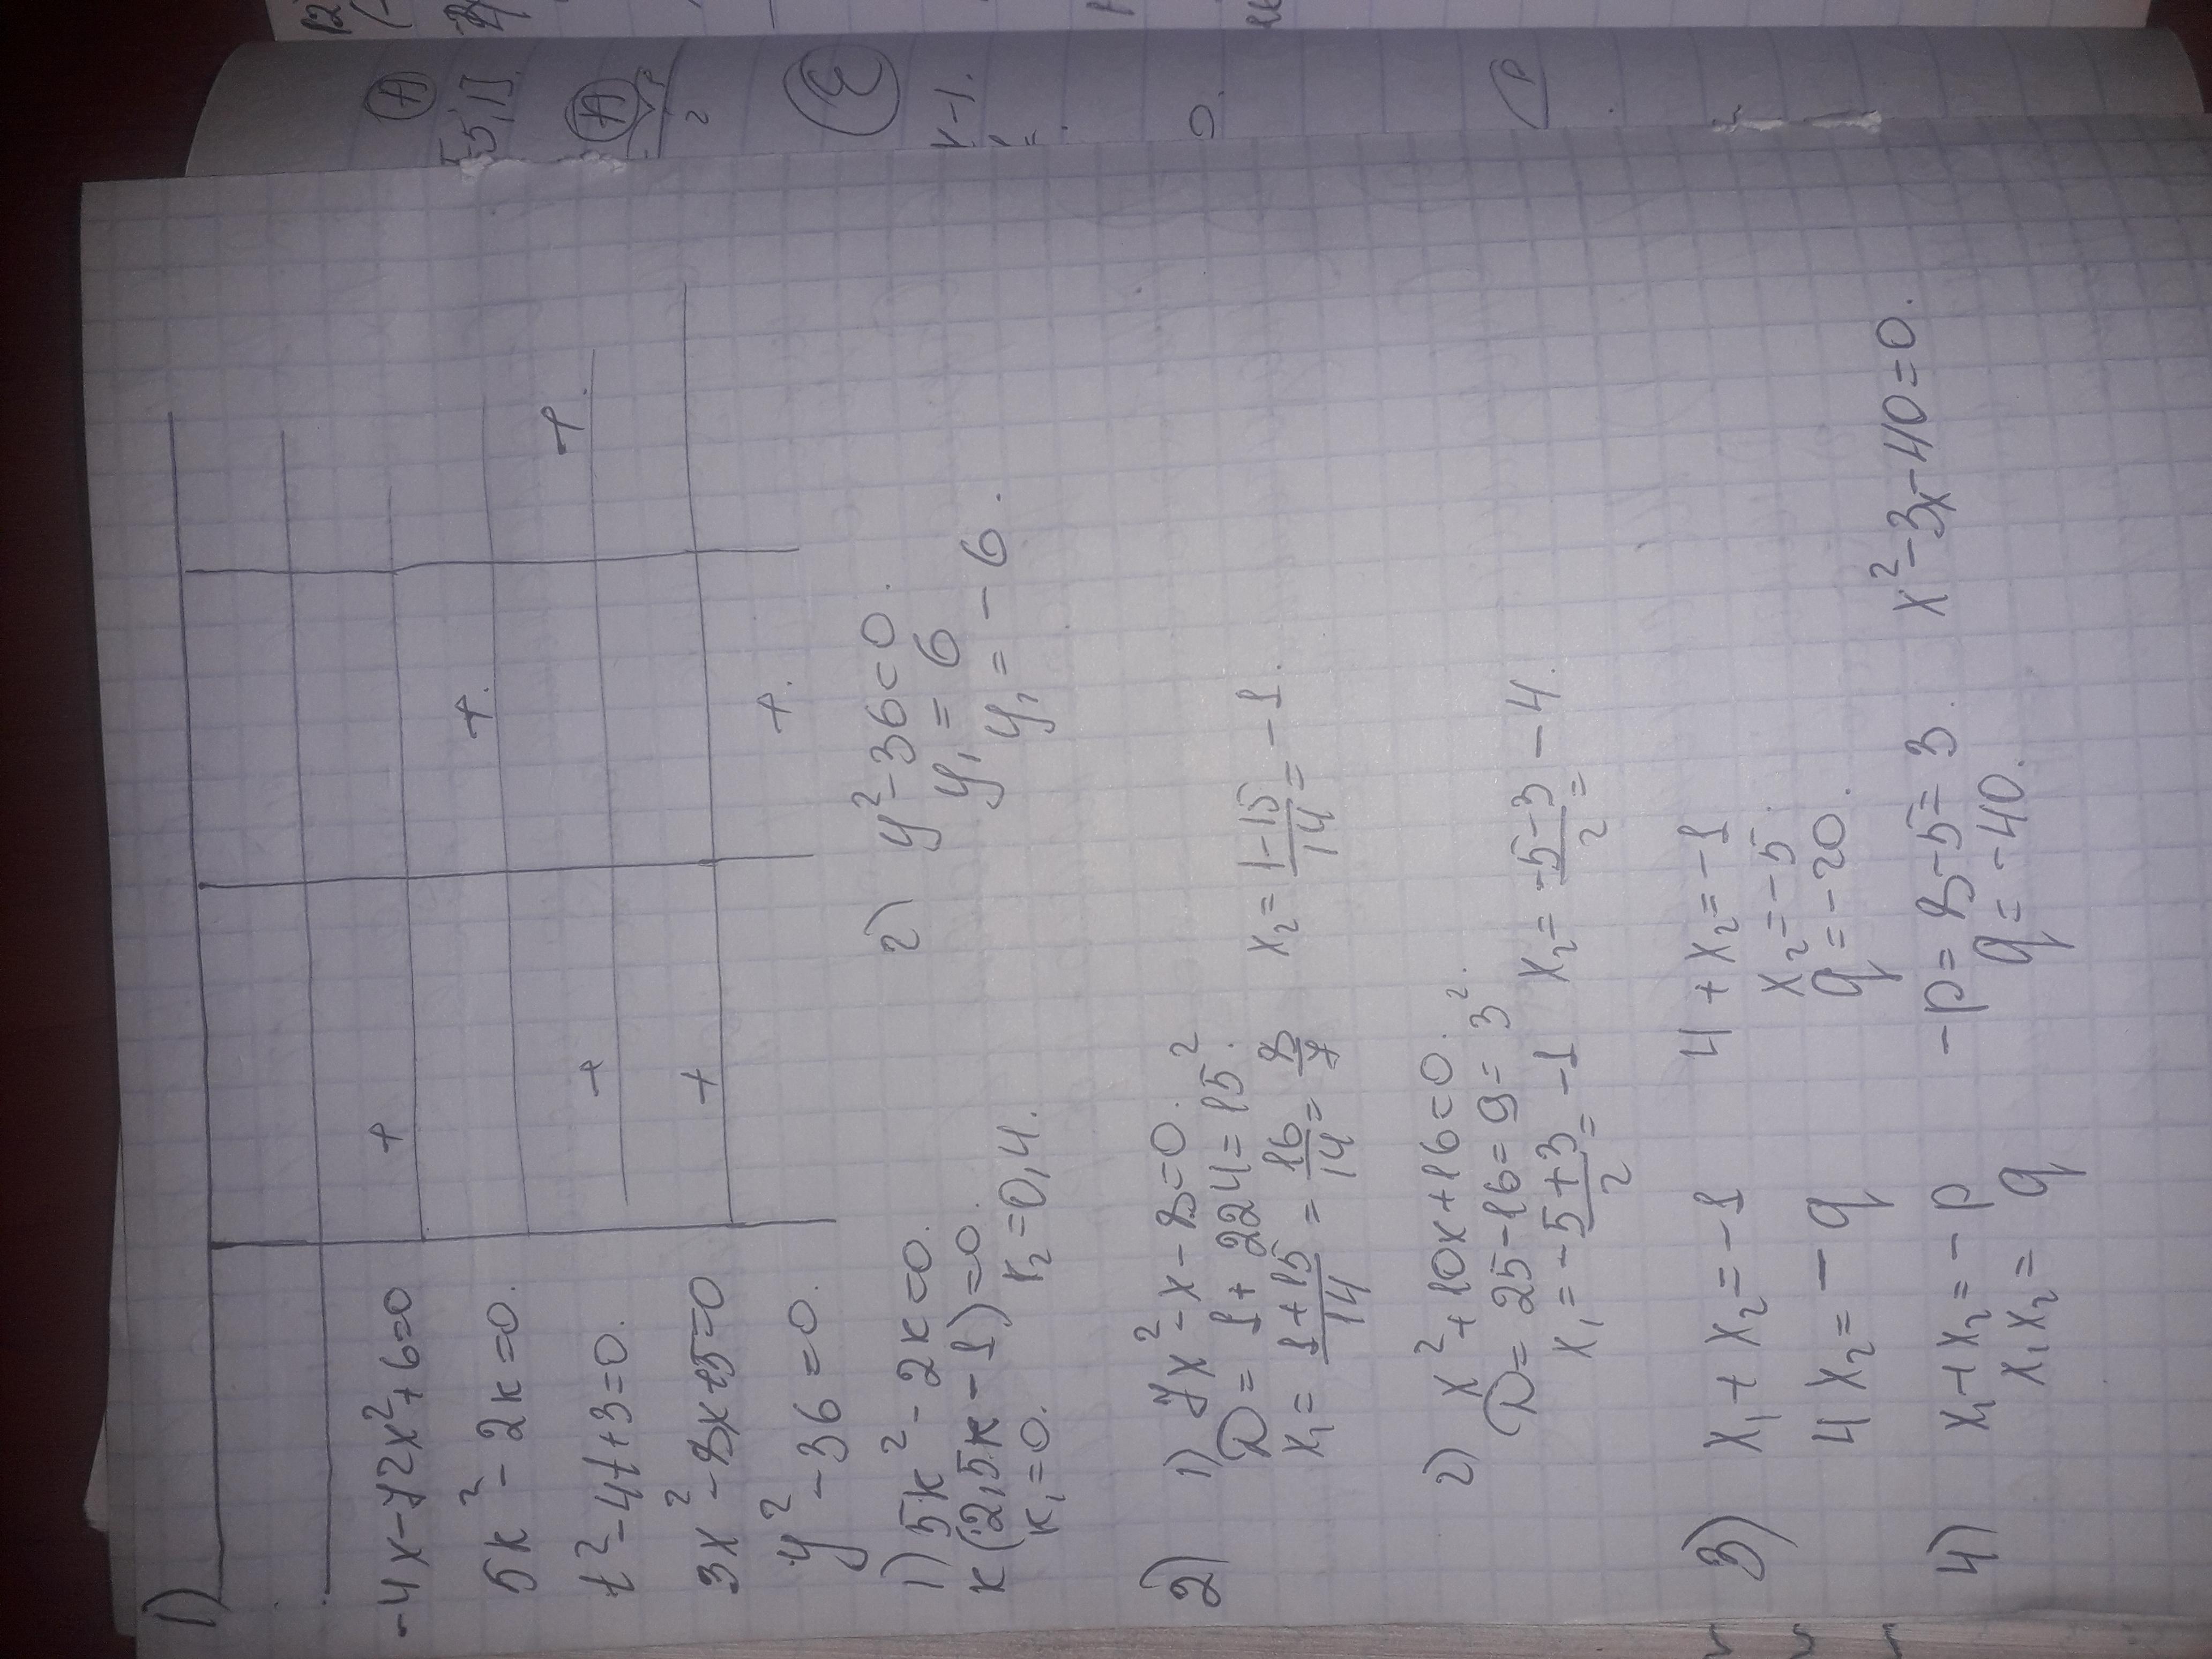 1)
-4x-72x²+6=0 +
5к²-2к=0. +.
t²-4t+3=0. + +.
3x²-8x+5=0 +
y²-36=0. +.
1) 5к²-2к=0. 2) y²-36=0.
к(2,5к-1)=0. y₁=6
к₁=0. к₂=0,4. y₁=-6.
2) 1) 7x²-x-8=0.
D=1+224=15².
x₁=(1+15)/14=16/14=8/7 x₂=(1-15)/14=-1.
2) x²+10x+16=0.
D=25-16=9=3².
x₁=(-5+3)/2=-1 x₂=(-5-3)/2=-4.
3) x₁+x₂=-1 4+x₂=-1
x₂=-5.
4x₂=-q q=-20.
4) x₁+x₂=-p -p=8-5=3. x²-3x-40=0.
x₁x₂=q q=-40.